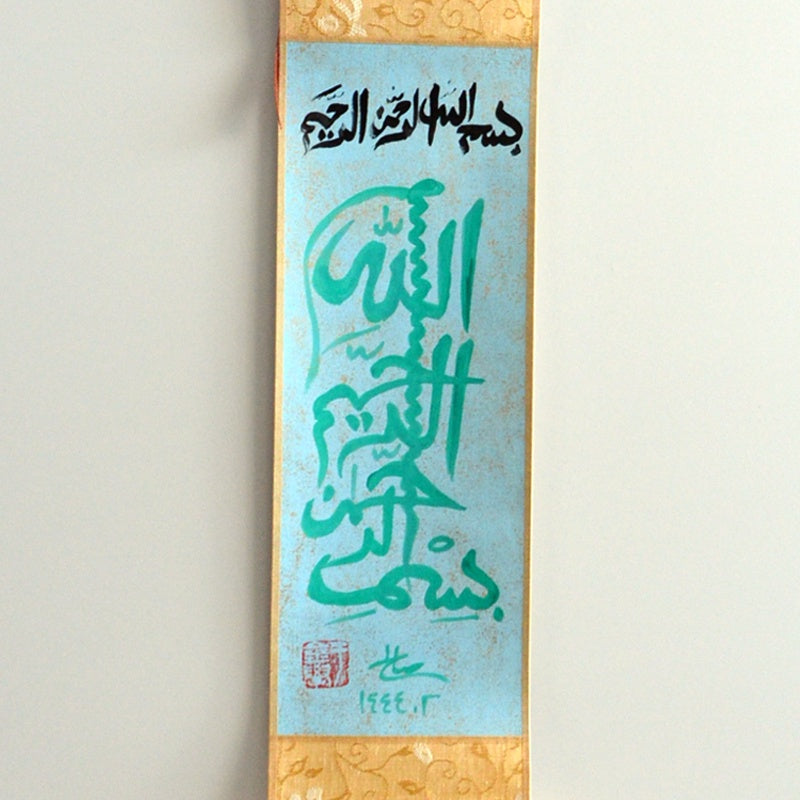 بسم الله الرحمن الرحيم
بِسْمِ اللّٰه الرحمن الرحيم
١٤٤٤.٢